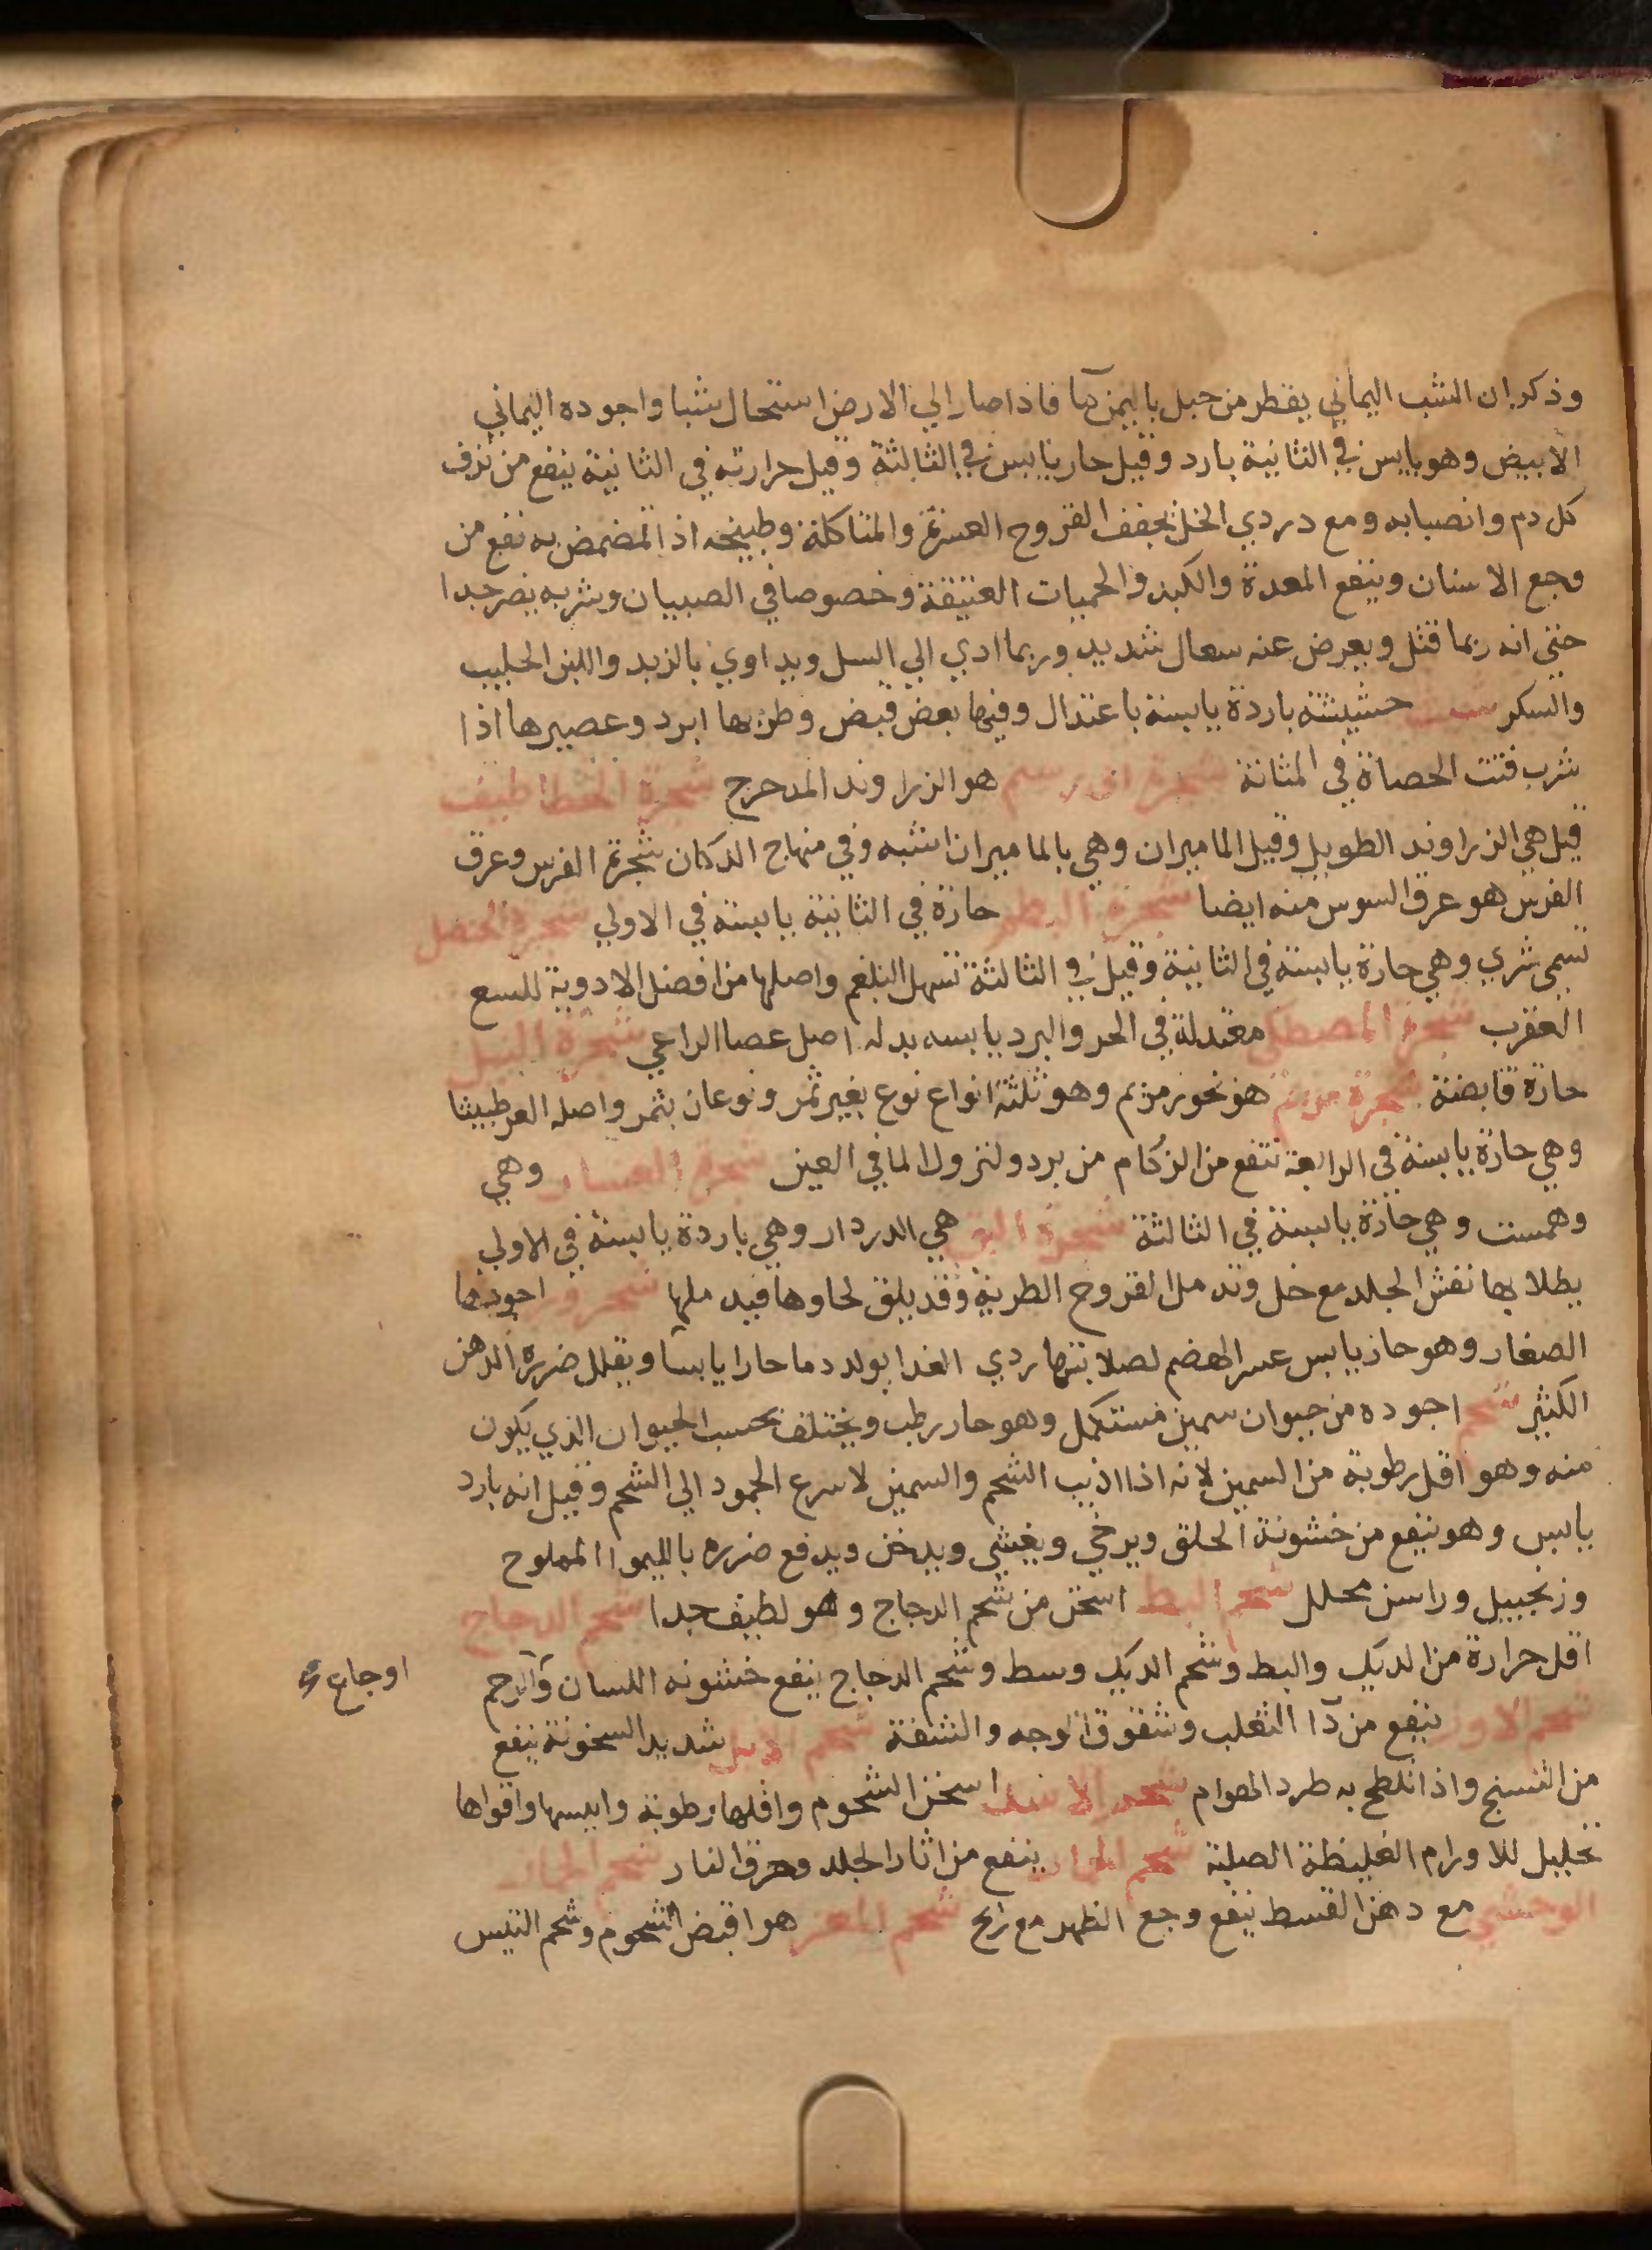 وذكر ان الشب اليماني يقطر من جبل باليمن كما فاذا صار الي الارض استحال شبا واجوده اليماني
الابيض وهو يابس في الثانية بارد وقيل حار يابس في الثالثة وقيل حرارته في الثانية ينفع من نزف
كل دم وانصبابه ومع دردي الخل يجفف القروح العسرة والمتاكلة وطبيخه اذا تمضمض به نفع من
وجع الاسنان وينفع المعدة والكبد والحميات العتيقة وخصوصا في الصبيان وشربه يضر جدا
حتى انه ربما قتل ويعرض عنه سعال شديد وربما ادي الي السل ويداوي بالزبد واللبن الحليب
والسكر حشيشة باردة يابسة باعتدال وفيها بعض قبض وطريها ابرد وعصيرها اذا
شرب فتت الحصاة في المثانة شجرة هو الزراوند المدحرج شجرة الخطاطيف
قيل هي الزراوند الطويل وقيل الماميران وهي بالماميران اشبه وفي منهاج الدكان شجرة الفرس وعرق
الفرس هو عرق السوس منه ايضا شجرة البطم حارة في الثانية يابسة في الاولي شجرة الحنظل
تسمى شري وهي حارة يابسة في الثانية وقيل في الثالثة تسهل البلغم واصلها من افضل الادوية للسع
العقرب شجرة المصطكى معتدلة في الحر والبرد يابسه بدله اصل عصا الراعي شجرة
حارة قابضة شجرة مريم هو بخور مريم وهو ثلثة انواع نوع بغير ثمر ونوعان بثمر واصله العرطنيثا
وهي حارة يابسة في الرابعة تنفع من الزكام من برد ولنزول الما في العين شجرة وهي
وهمست وهي حارة يابسة في الثالثة شجرة البق هي الدردار وهي باردة يابسة في الاولي
يطلا بها تقشر الجلد مع خل وتدمل القروح الطرية وقد يلق لحاوها فيدملها اجودها
الصغار وهو حار يابس عسر الهضم لصلابتها ردي الغدا يولد دما حارا يابسا ويقلل ضرره الدهن
الكثير شحم اجوده من حيوان سمين مستكمل وهو حار رطب ويختلف بحسب الحيوان الذي يكون
منه وهو اقل رطوبة من السمين لانه اذا اذيب الشحم والسمين لاسرع الجمود الي الشحم وقيل انه بارد
يابس وهو ينفع من خشونة الحلق ويرخي ويغشي ويدخن ويدفع ضرره بالليموا المملوح
وزنجبيل وراسن محلل شحم البط اسخن من شحم الدجاج وهو لطيف جدا شحم الدجاج
اقل حرارة من الديك والبط وشحم الديك وسط وشحم الدجاج ينفع خشونه اللسان والرحم
اوجاع
شحم الاوز ينفع من دآ الثعلب وشقوق الوجه والشفة شحم شديد السخونة ينفع
من التشنج واذا تلطخ به طرد الهوام شحم الاسد اسخن الشحوم واقلها رطوبة وايبسها واقواها
تحليل للاورام الغليظة الصلبة شحم الحمار ينفع من اثار الجلد وحرق النار شحم الحمار
الوحشي مع دهن القسط ينفع وجع الظهر مع ريح شحم الماعز هو اقبض الشحوم وشحم التيس